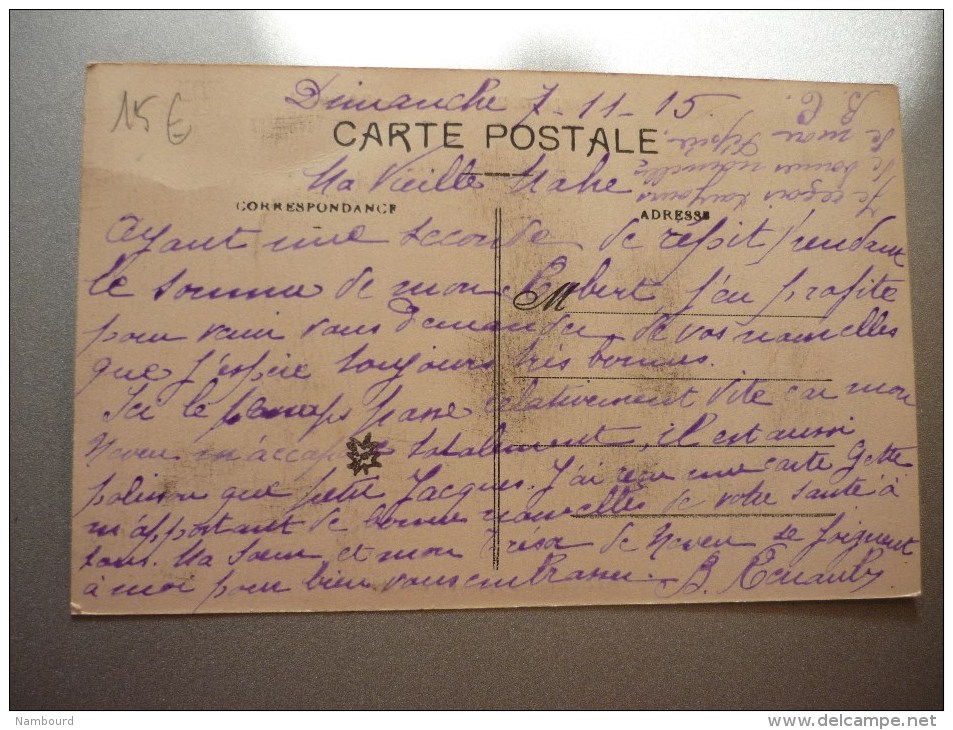 15 €
Dimanche 7-11-15
CARTE POSTALE
Ma Vieille
CORRESPONDANCE
ADRESSE
Ayant une seconde de répit pendant
le somme de mon Robert, j'en profite
pour venir vous demander de vos nouvelles
que j'espère toujours très bonnes.
Ici le temps passe relativement vite car mon
Neveu m'accapare totalement, il est aussi
polisson que petit Jacques. J'ai reçu une carte
m'apportant de bonnes nouvelles de votre santé à
tous. Ma Sœur et mon trésor de Neveu se joignent
à moi pour bien vous embrasser. B.
M
Je reçois toujours
de bonnes nouvelles
de mon
B.
Nambourd
www.delcampe.net